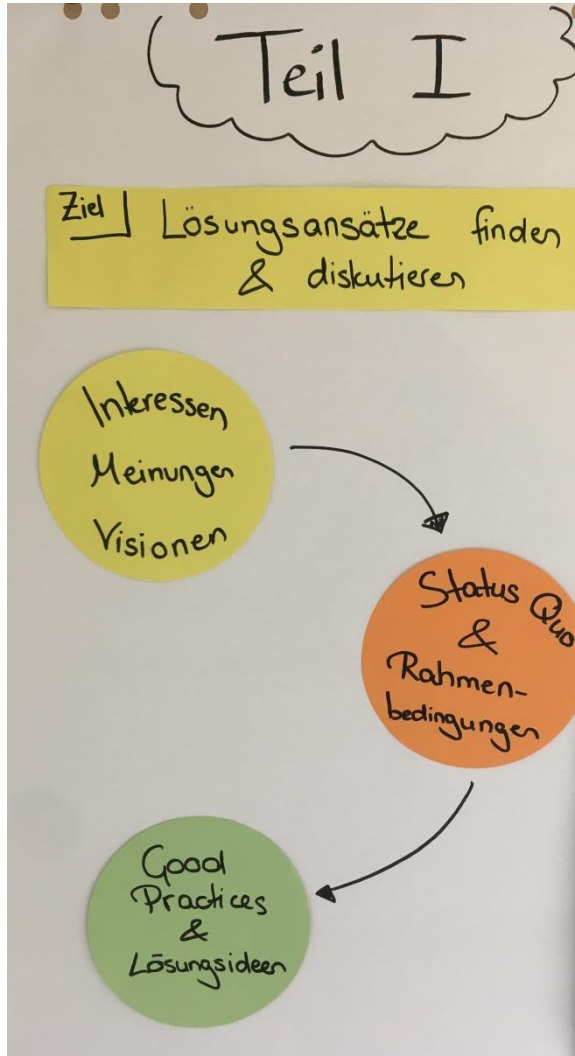 Teil I
Ziel Lösungsansätze finden
& diskutieren
Interessen
Meinungen
Visionen
Status Quo
&
Rahmen-
bedingungen
Good
Practices
&
Lösungsideen